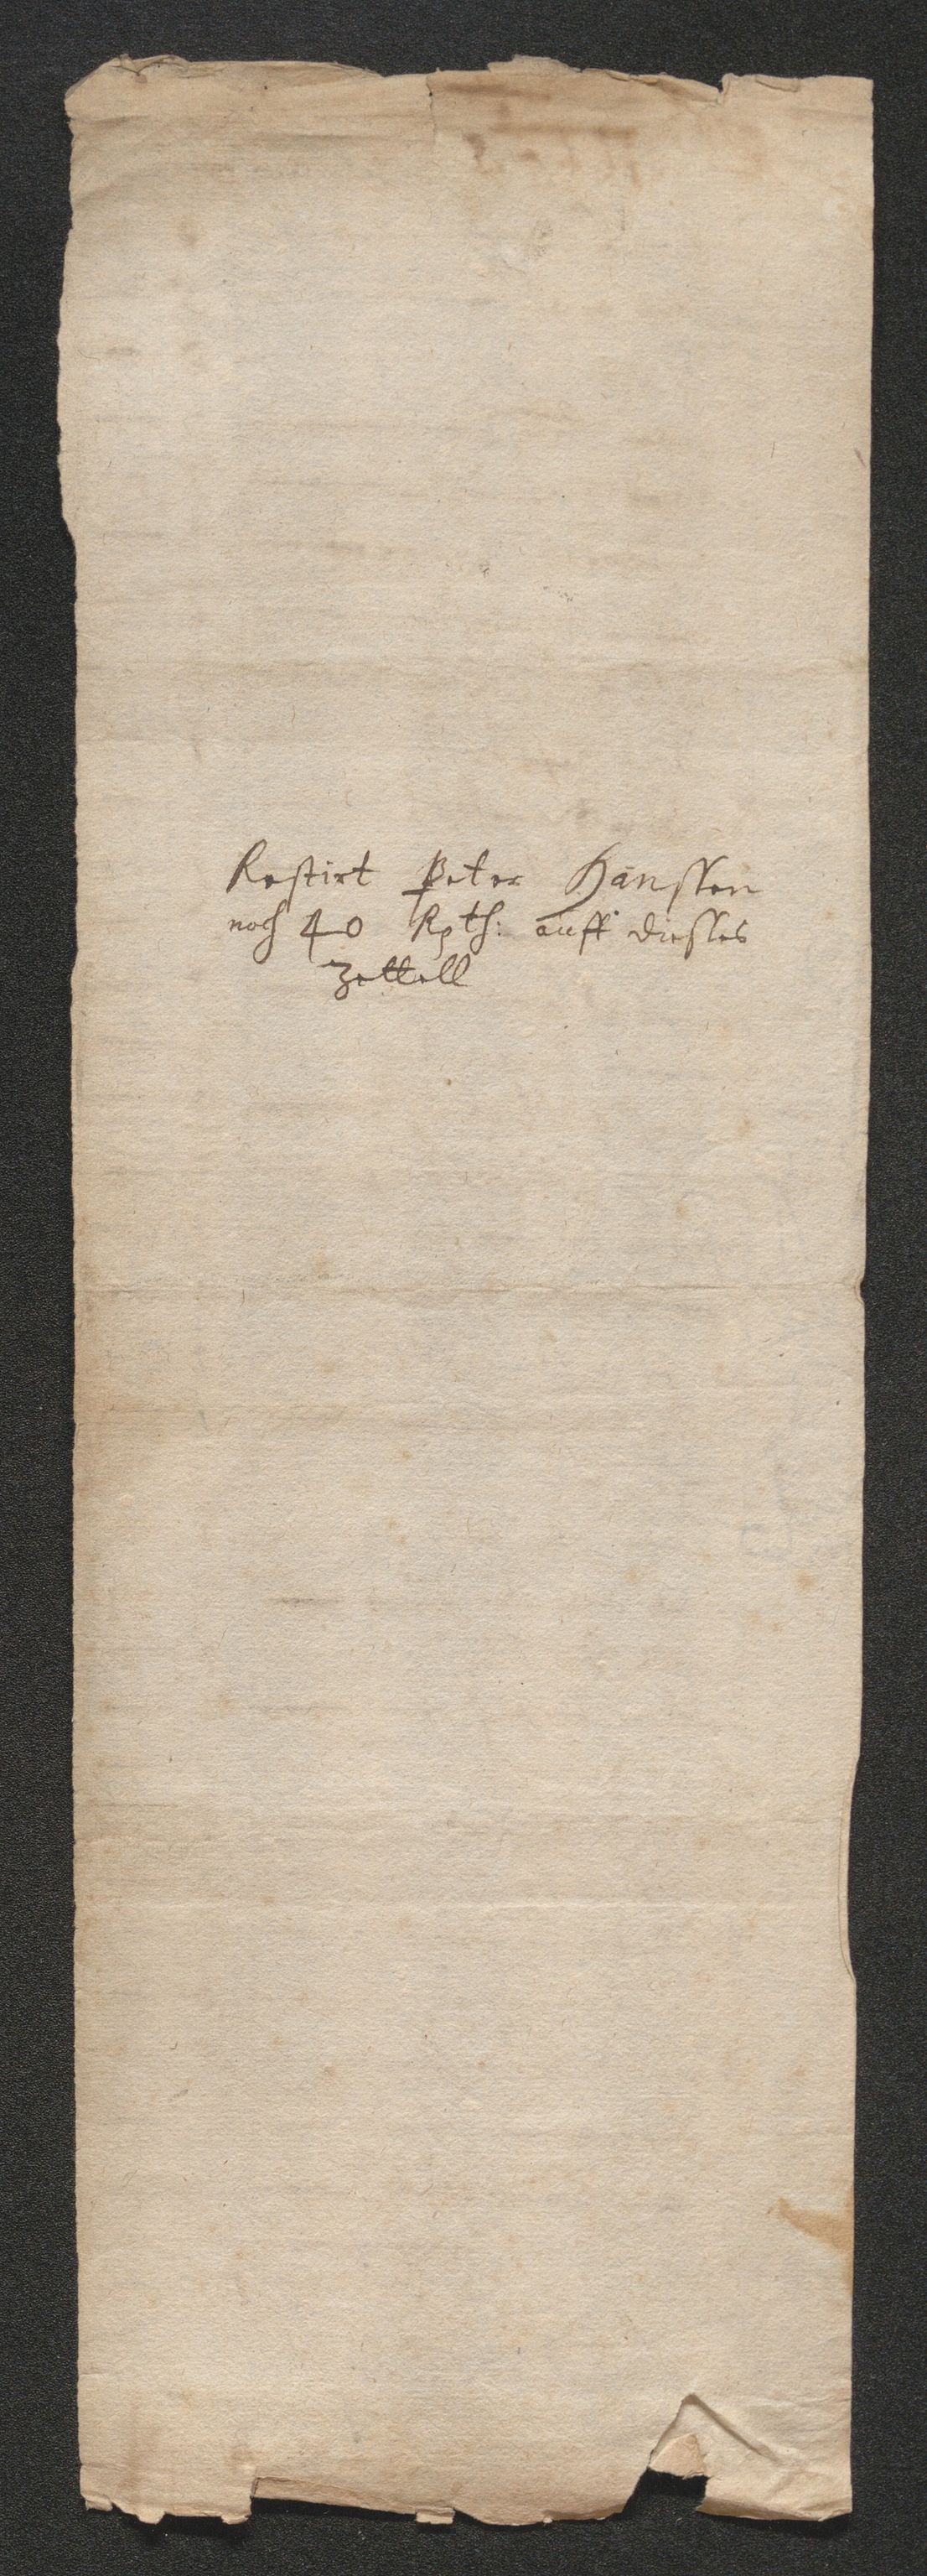 Restirt Peter Hanssen
noch 40 Rxth: auff diesses
Zettell